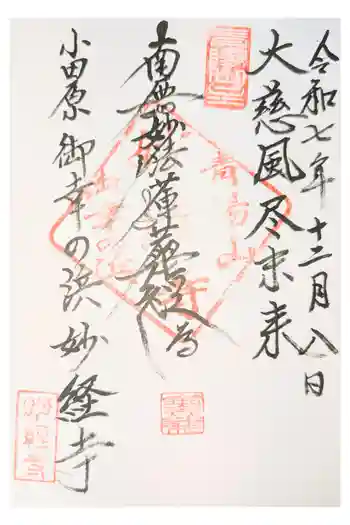 令和七年十二月八日
大慈風尽未来
南無妙法蓮華経
為
小田原御幸の浜妙経寺